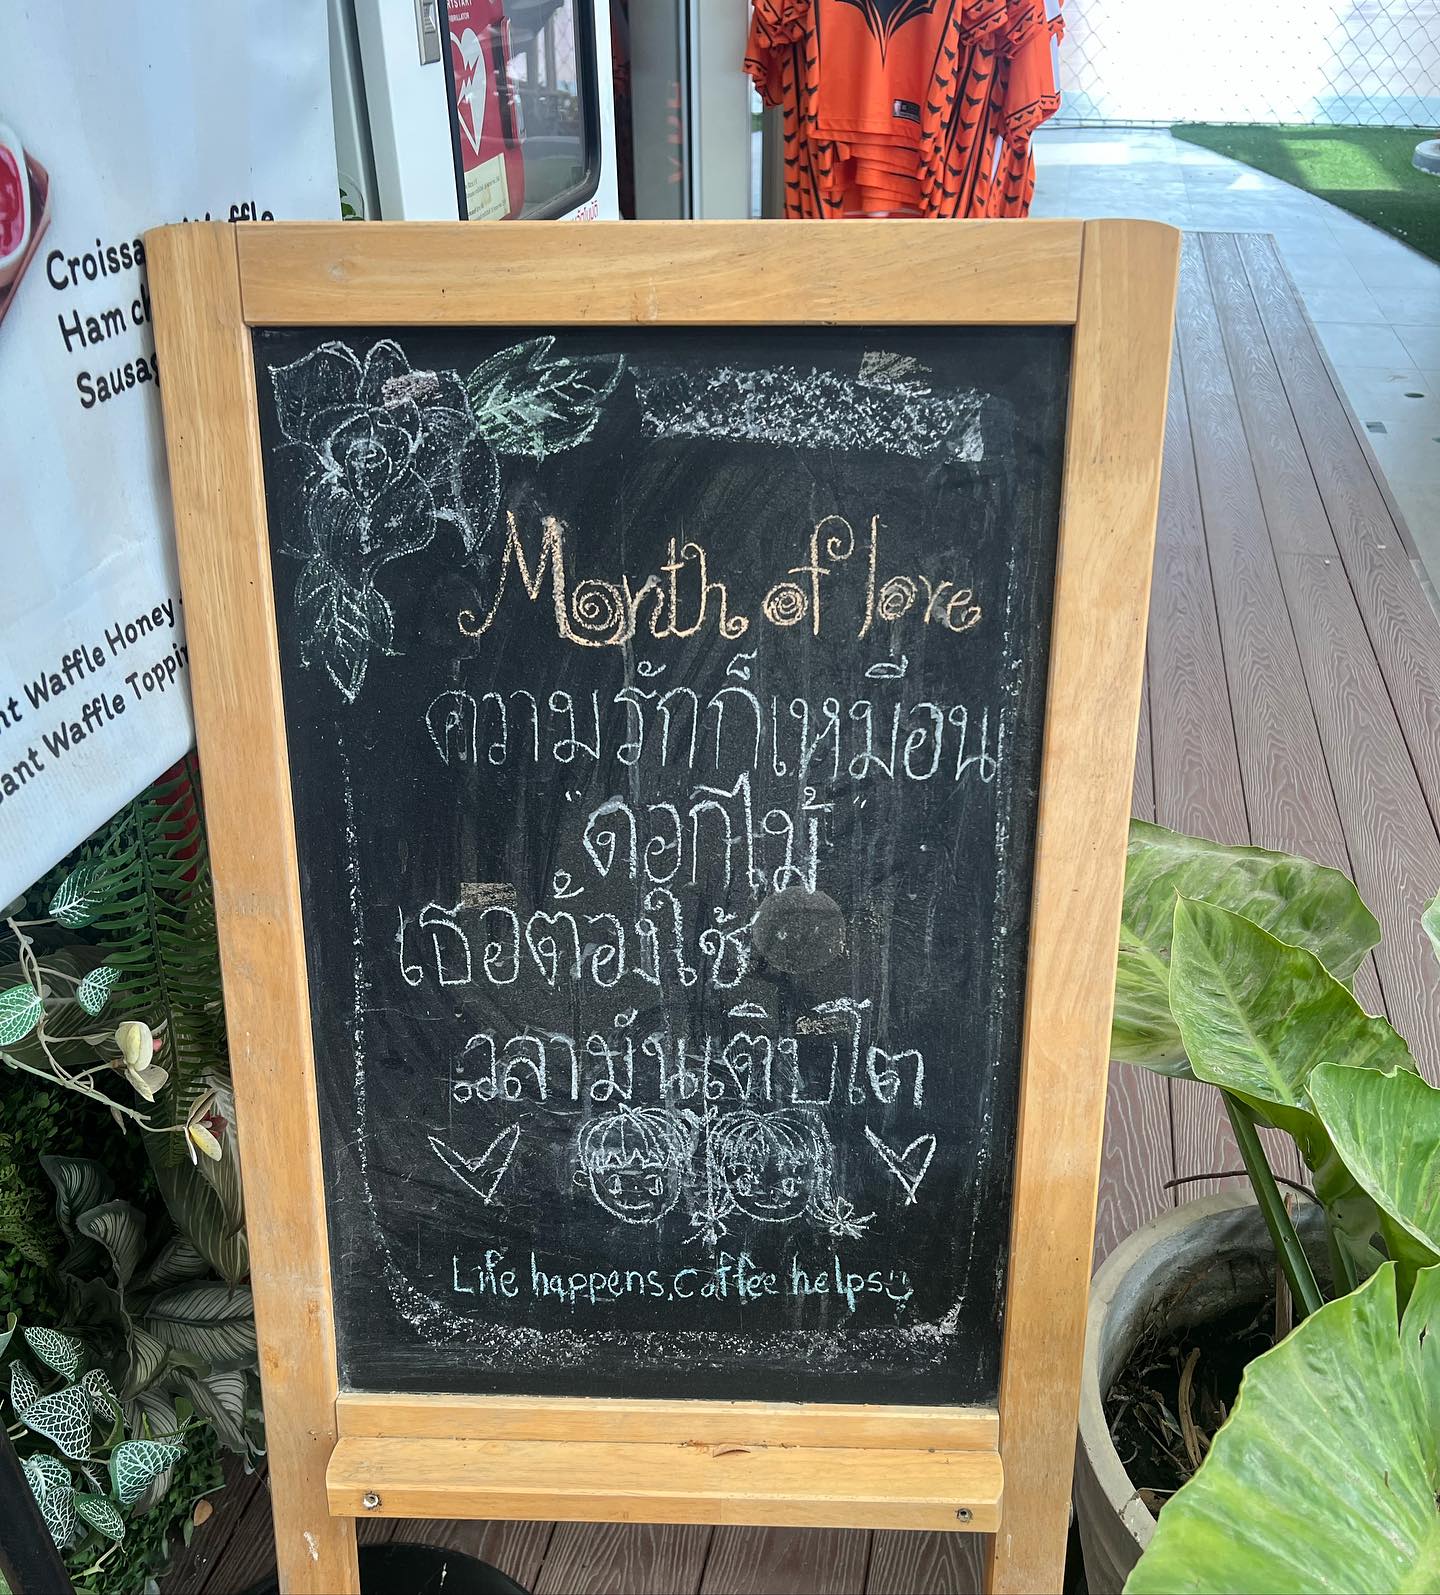 RTSTART
FIBRILLATOR
Croissa
Ham ch
Sausag
Waffle
nt Waffle Honey
sant Waffle Toppin
Month of love
ความรักก็เหมือน
"ดอกไม้"
เธอต้องใช้
วลามันเติบโต
Life happens, Coffee helps